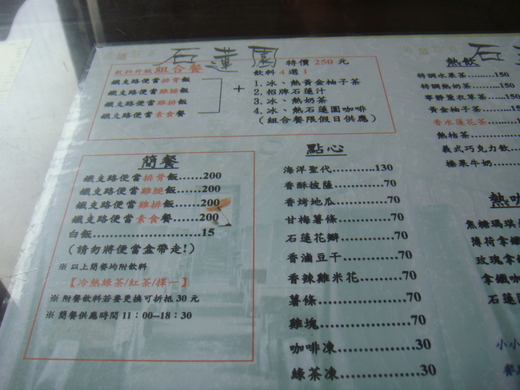 石蓮園
飲料升級組合餐 特價 250 元
鐵支路便當排骨飯
鐵支路便當雞腿飯
鐵支路便當雞排飯
鐵支路便當素食餐
+
飲料 4 選 1
1.冰、熱黃金柚子茶
2.招牌石蓮汁
3.冰、熱奶茶
4.冰、熱石蓮園咖啡
(組合餐限假日供應)
簡餐
鐵支路便當排骨飯......200
鐵支路便當雞腿飯......200
鐵支路便當雞排飯......200
鐵支路便當素食餐......200
白飯..................15
(請勿將便當盒帶走!)
※以上簡餐均附飲料
【冷熱綠茶/紅茶/擇一】
※附餐飲料若要更換可折抵 30 元
※簡餐供應時間 11:00—18:30
點心
海洋聖代...............130
香酥披薩...............70
香烤地瓜...............70
甘梅薯條...............70
石蓮花瓣...............70
香滷豆干...............70
香辣雞米花.............70
薯條...................70
雞塊...................70
咖啡凍.................30
綠茶凍.................30
石
熱飲
特調水果茶.........150
特調熱奶茶.........150
寧靜薰衣草茶.......150
黃金柚子茶
香水蓮花茶
熱桔茶
義式巧克力飲
榛果牛奶
熱咖
焦糖瑪琪
薄荷拿鐵
玫瑰拿
拿鐵咖
石蓮
小小
餐